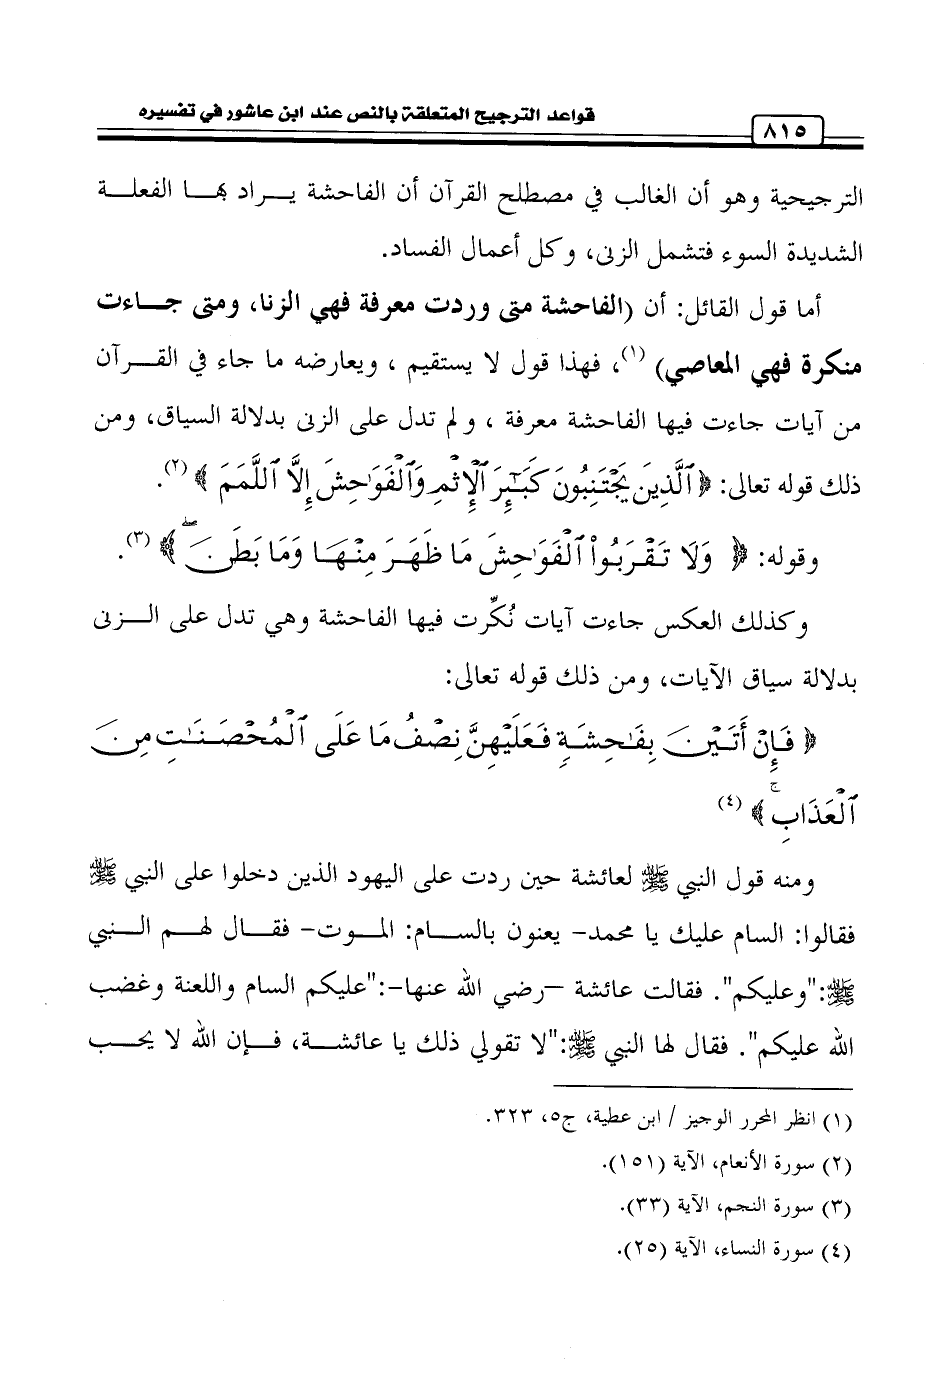 قواعد الترجيح المتعلقة بالنص عند ابن عاشور في تفسيره
٨١٥
الترجيحية وهو أن الغالب في مصطلح القرآن أن الفاحشة يـــراد بهـــا الفعلـــة
الشديدة السوء فتشمل الزنى، وكل أعمال الفساد.
أما قول القائل: أن (الفاحشة متى وردت معرفة فهي الزنا، ومتى جـــاءت
منكرة فهي المعاصي) (١)، فهذا قول لا يستقيم ، ويعارضه ما جاء في القـــرآن
من آيات جاءت فيها الفاحشة معرفة ، ولم تدل على الزنى بدلالة السياق، ومن
ذلك قوله تعالى: ﴿ ٱلَّذِينَ يَجْتَنِبُونَ كَبَـٰٓئِرَ ٱلْإِثْمِ وَٱلْفَوَٰحِشَ إِلَّا ٱللَّمَمَ ﴾ (٢).
وقوله: ﴿ وَلَا تَقْرَبُوا۟ ٱلْفَوَٰحِشَ مَا ظَهَرَ مِنْهَا وَمَا بَطَنَ ۖ ﴾ (٣).
وكذلك العكس جاءت آيات نُكِّرت فيها الفاحشة وهي تدل على الـــزنى
بدلالة سياق الآيات، ومن ذلك قوله تعالى:
﴿ فَإِنْ أَتَيْنَ بِفَـٰحِشَةٍ فَعَلَيْهِنَّ نِصْفُ مَا عَلَى ٱلْمُحْصَنَـٰتِ مِنَ
ٱلْعَذَابِ ۚ ﴾ (٤)
ومنه قول النبي ﷺ لعائشة حين ردت على اليهود الذين دخلوا على النبي ﷺ
فقالوا: السام عليك يا محمد- يعنون بالســـام: المـــوت- فقـــال لهـــم الـــنبي
ﷺ:"وعليكم". فقالت عائشة –رضي الله عنها–:"عليكم السام واللعنة وغضب
الله عليكم". فقال لها النبي ﷺ:"لا تقولي ذلك يا عائشـــة، فـــإن الله لا يحـــب
(١) انظر المحرر الوجيز / ابن عطية، ج٥، ٣٢٣.
(٢) سورة الأنعام، الآية (١٥١).
(٣) سورة النجم، الآية (٣٣).
(٤) سورة النساء، الآية (٢٥).